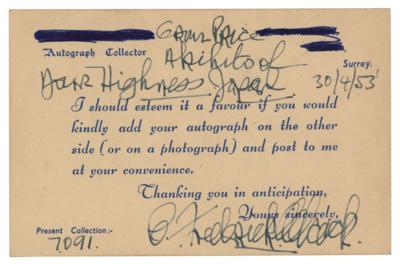 Crown Prince
Autograph Collector Akihito of Surrey.
Your Highness Japan 30/4/53
I should esteem it a favour if you would
kindly add your autograph on the other
side (or on a photograph) and post to me
at your convenience.
Thanking you in anticipation,
Yours sincerely,
Present Collection:-
7091.